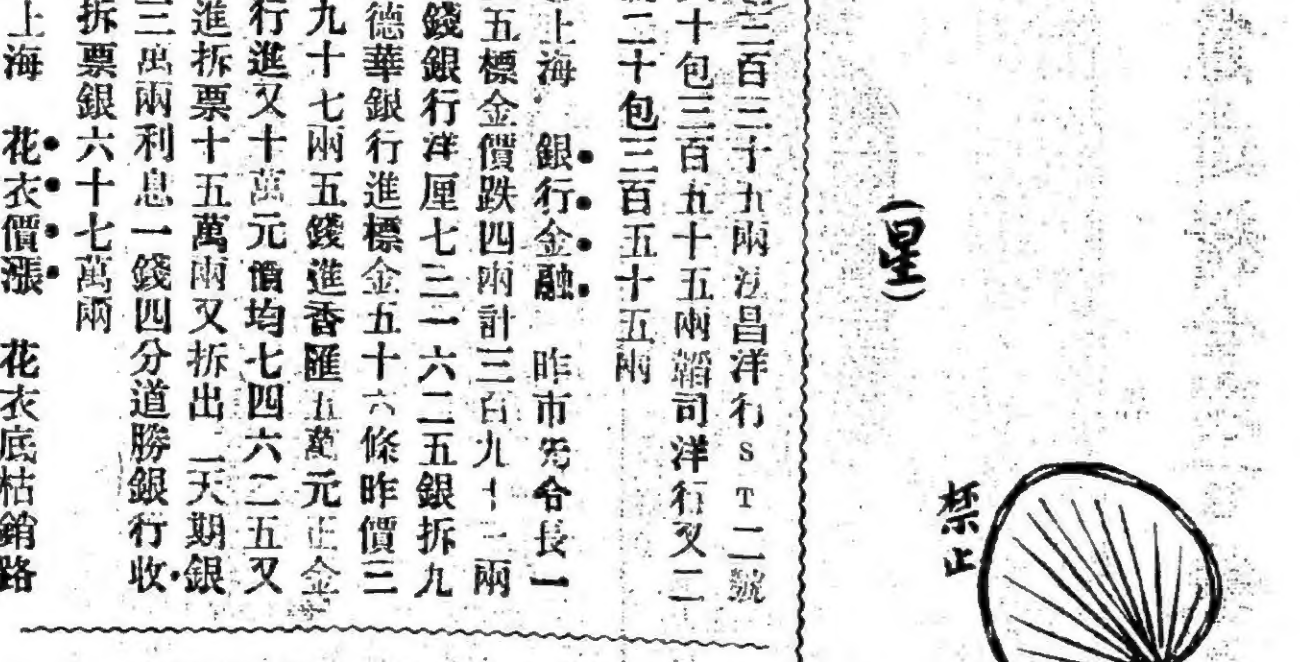 （星）
禁止
三百三十九兩法昌洋行ST二號
十包三百五十五兩韜司洋行又二
二十包三百五十五兩
上海　銀行金融　昨市先令長一
五標金價跌四兩計三百九十二兩
錢銀行洋厘七三一六二五銀拆九
德華銀行進標金五十六條昨價三
九十七兩五錢進香匯五萬元正金
行進又十萬元價均七四六二五又
進拆票十五萬兩又拆出二天期銀
三萬兩利息一錢四分道勝銀行收
拆票銀六十七萬兩
上海　花衣價漲　花衣底枯銷路